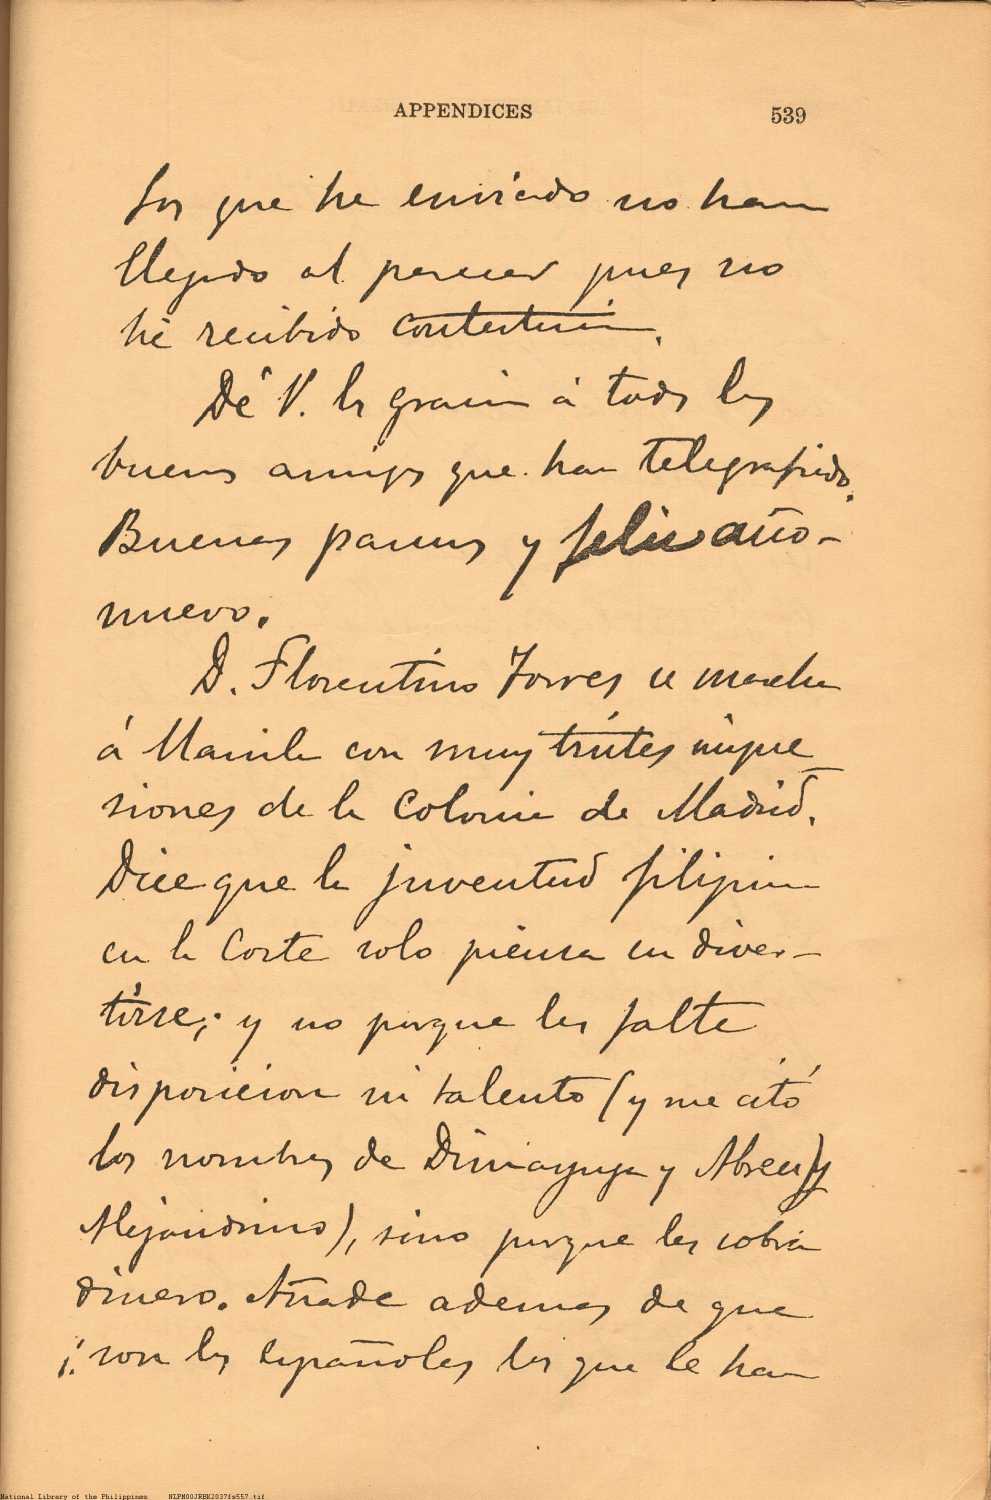 APPENDICES 539
los que he enviado no han
llegado al parecer pues no
he recibido contestación.
Dé V. las gracias á todos los
buenos amigos que han telegrafiado.
Buenas pascuas y feliz año-
nuevo.
D. Florentino Torres se marcha
á Manila con muy tristes impre
siones de la Colonia de Madrid.
Dice que la juventud filipina
en la Corte solo piensa en diver-
tirse; y no porque les falte
disposicion ni talento (y me citó
los nombres de Dimayuga y Abreu y
Alejandrino), sino porque les sobra
dinero. Añade ademas de que
¡son los españoles los que le han
National Library of the Philippines NLPM00JRBK2037fs557.tif